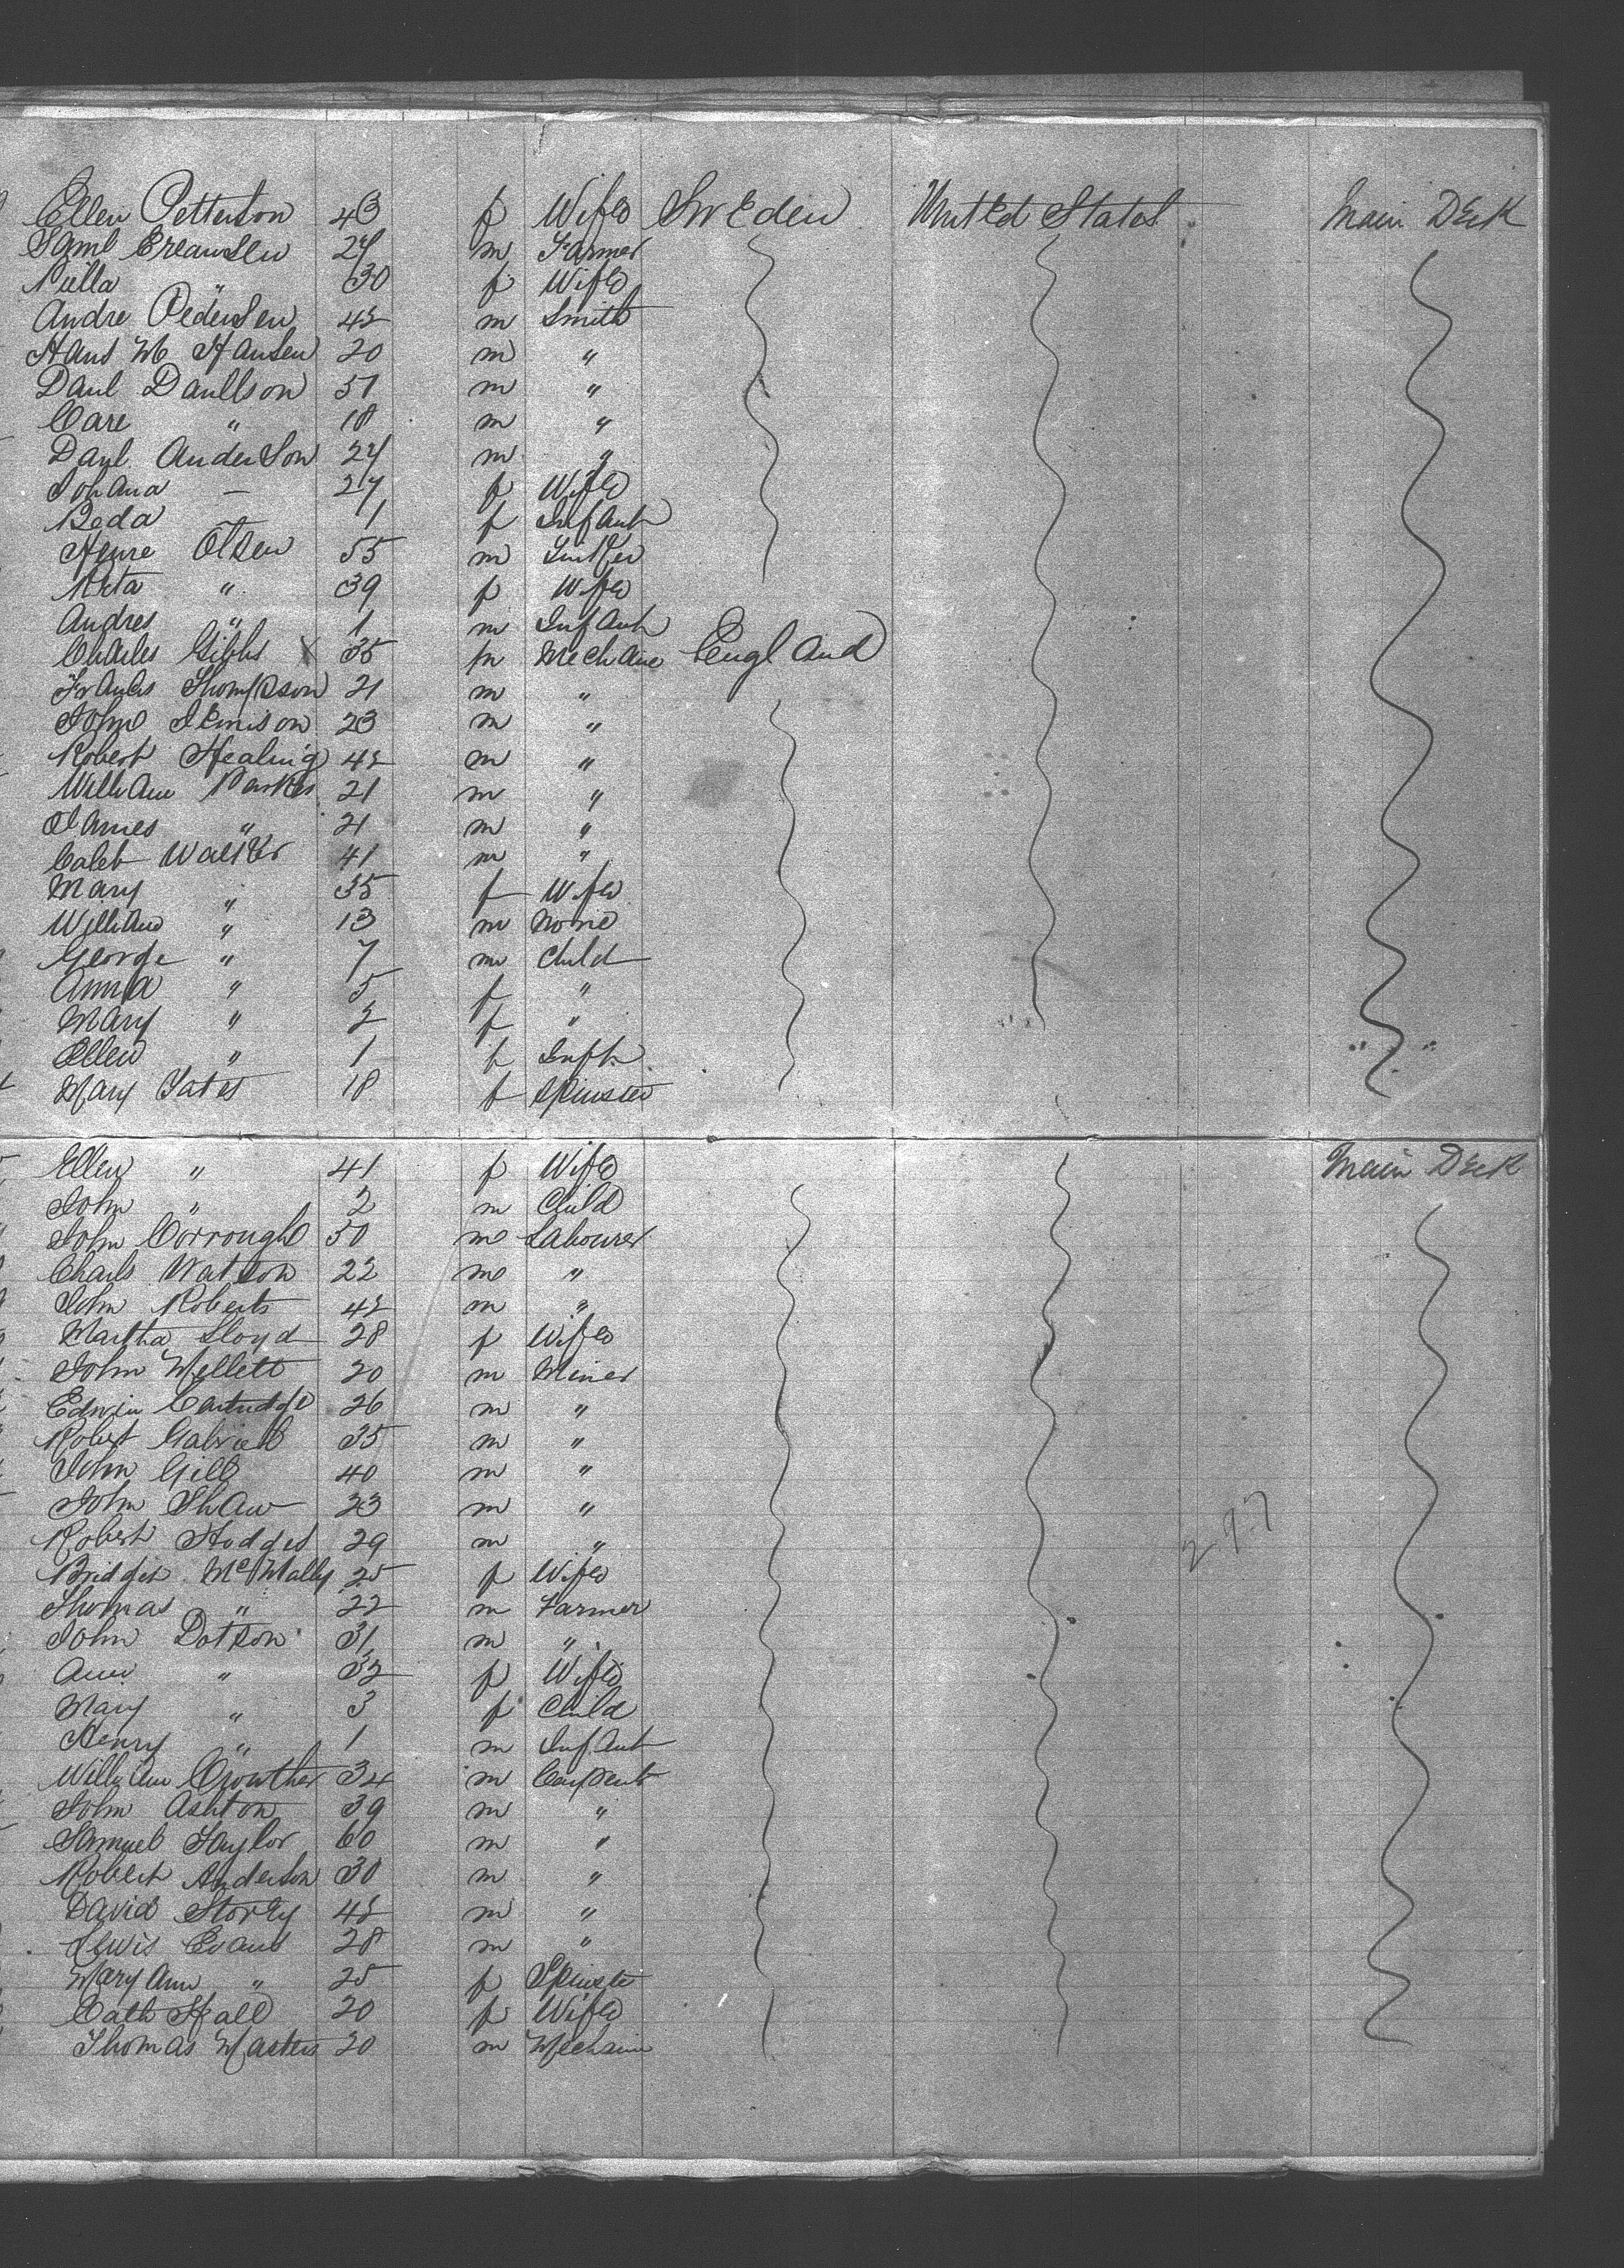 Ellen Petterson 43 f Wife Sweden United States Main Deck
Saml 24 m Farmer
" 30 f Wife
Andre Pedersen 42 m Smith
Hans M Hansen 20 m "
Danl Daullson 51 m "
Care " 18 m "
Danl Anderson 24 m "
Johana — 27 f Wife
Beda — 1 f Infant
Olsen 55 m
" 39 f Wife
Andres " 1 m Infant
Charles Gibbs X 35 m Mechanic England
Thompson 21 m "
John 23 m "
Robert Healing 42 m "
William Parkes 21 m "
James " 21 m "
Caleb Walker 41 m "
Mary " 35 f Wife
William " 13 m None
George " 7 m Child
Anna " 5 f "
Mary " 2 f "
Ellen " 1 f Inft
Mary Yates 18 f Spinster
Ellen " 41 f Wife Main Deck
John " 2 m Child
John Corrough 50 m Labourer
Charls Watson 22 m "
John Roberts 42 m "
Martha Lloyd 28 f Wife
John Mellett 20 m Miner
Edwin 26 m "
Robert Gabriell 35 m "
John Gill 40 m "
John Shaw 23 m "
Robert Hodges 29 m "
Bridget McNally 25 f Wife
Thomas " 22 m Farmer
John Dotson 31 m "
Ann " 32 f Wife
Mary " 3 f Child
Henry " 1 m Infant
William Crowther 34 m Carpent
John Ashton 39 m "
Samuel Taylor 60 m "
Robert Anderson 30 m "
David Storey 42 m "
Lewis Evans 28 m "
Mary Ann " 25 f Spinste
Cath Hall 20 f Wife
Thomas Masters 20 m